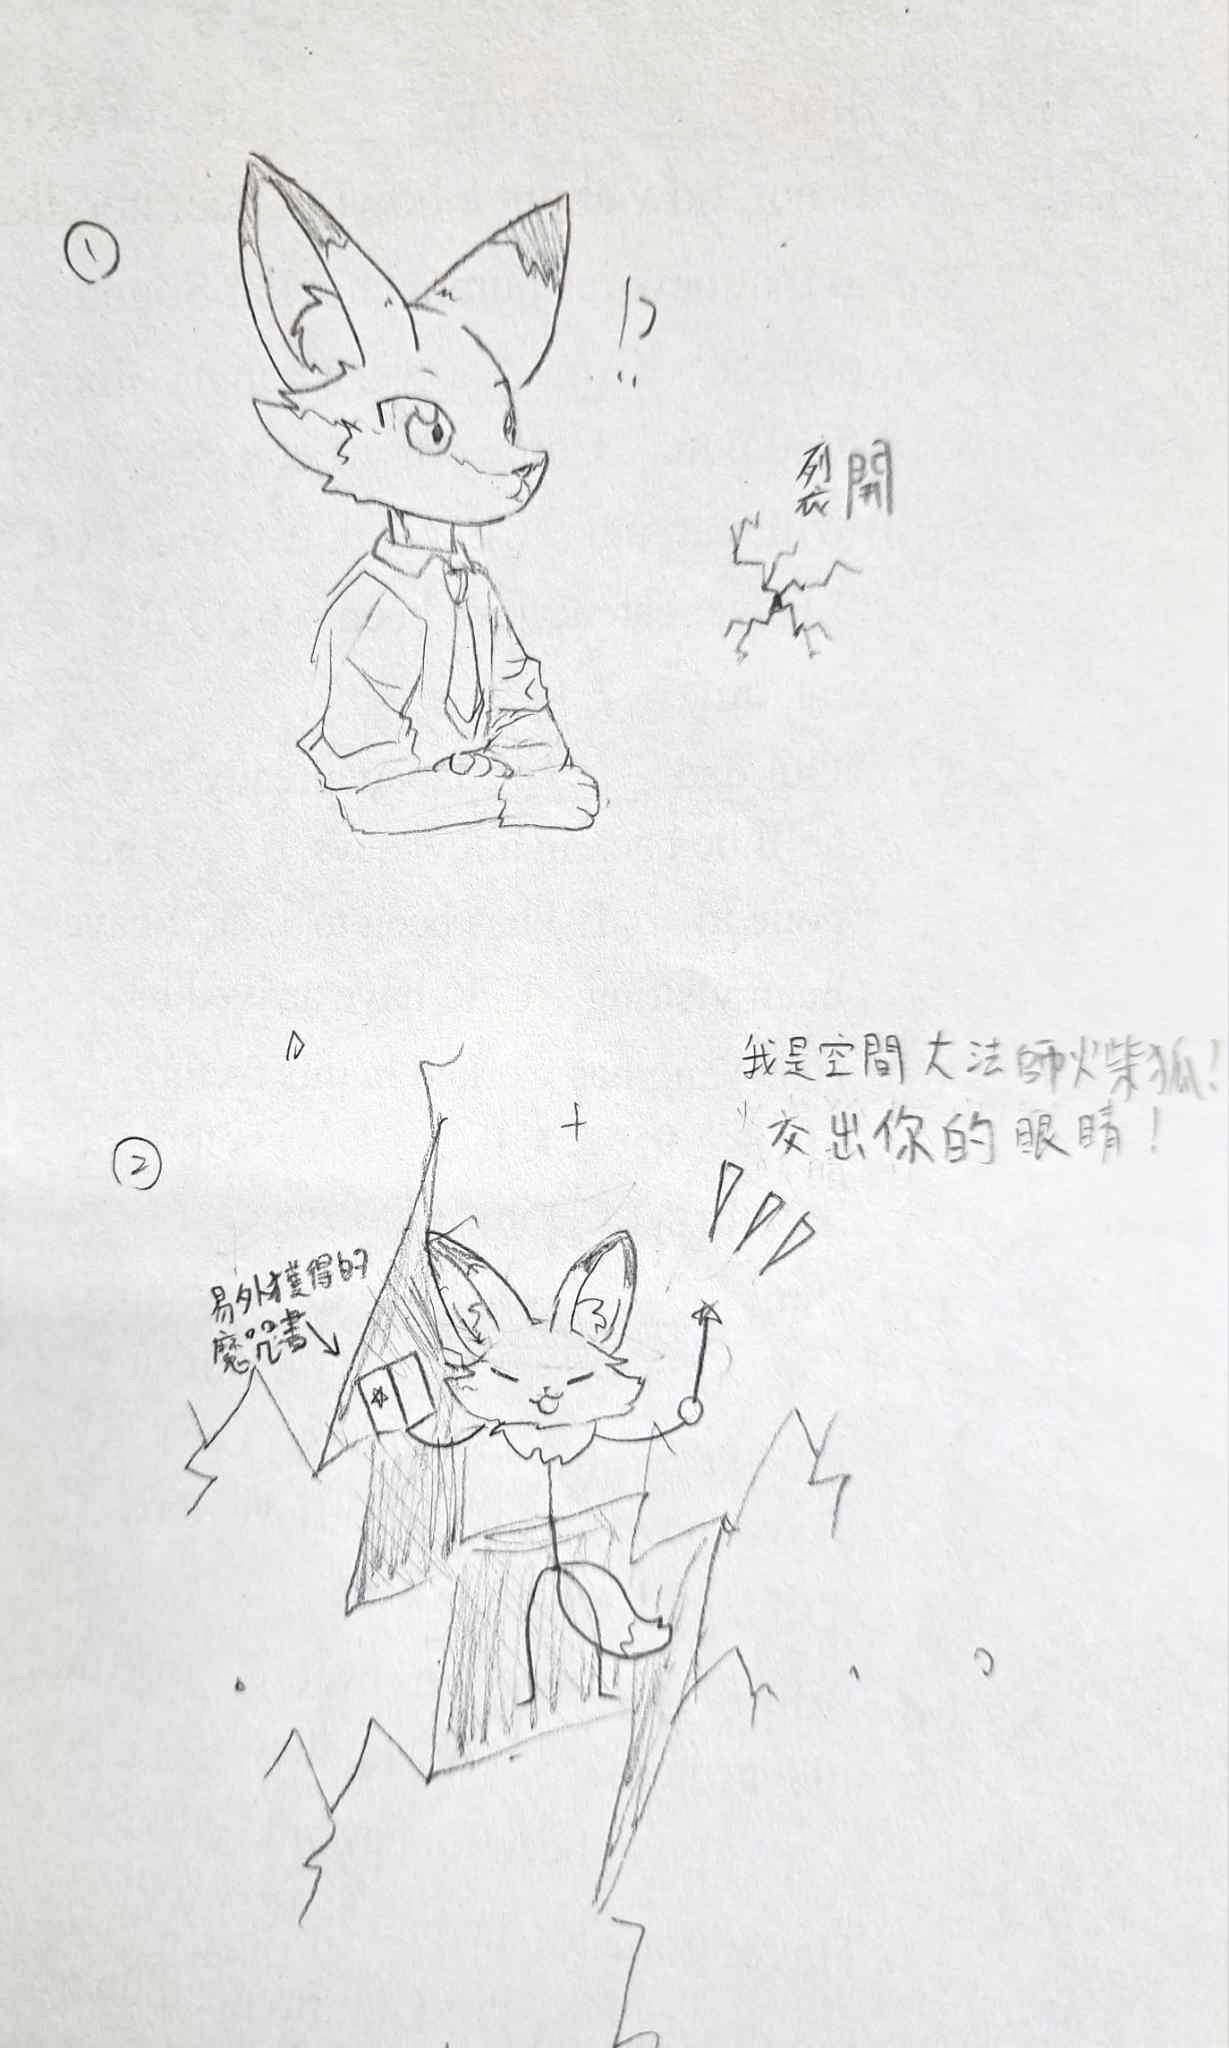 ①
!?
裂開
②
我是空間大法師火柴狐!
交出你的眼睛!
易外獲得的
魔咒書